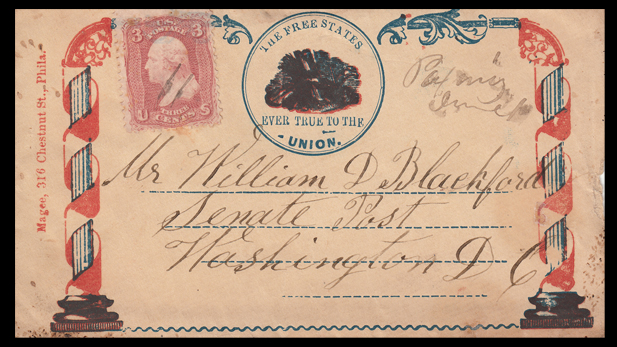 Magee, 316 Chestnut St., Phila.
3 U.S. POSTAGE 3
U THREE CENTS S
THE FREE STATES.
EVER TRUE TO THE
UNION.
Mr William D Blackford
Senate Post
Washington D C